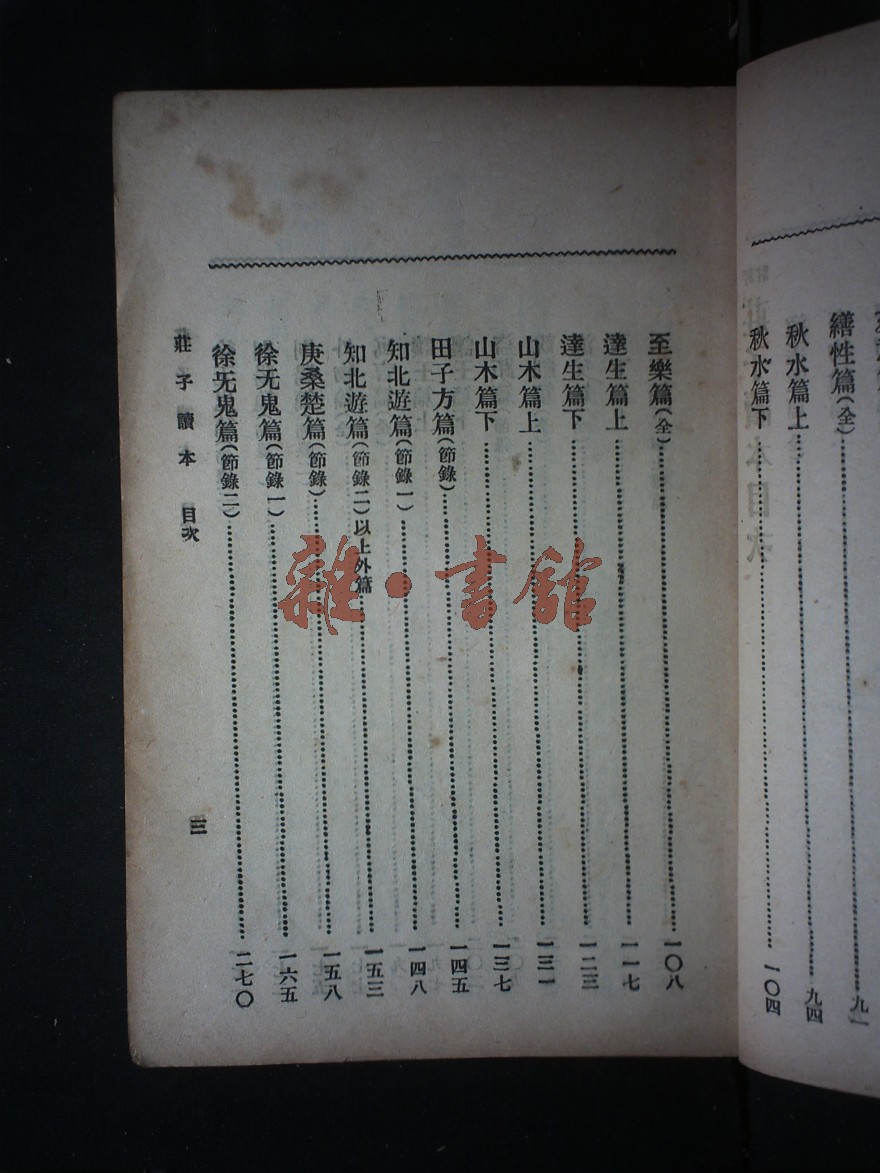 繕性篇(全)⋯⋯九一
秋水篇上⋯⋯九四
秋水篇下⋯⋯一〇四
至樂篇(全)⋯⋯一〇八
達生篇上⋯⋯一一七
達生篇下⋯⋯一二三
山木篇上⋯⋯一三一
山木篇下⋯⋯一三七
田子方篇(節錄)⋯⋯一四五
知北遊篇(節錄一)⋯⋯一四八
知北遊篇(節錄二)以上外篇⋯⋯一五三
庚桑楚篇(節錄)⋯⋯一五八
徐无鬼篇(節錄一)⋯⋯一六五
徐无鬼篇(節錄二)⋯⋯二七〇
莊子讀本 目次 三
雜·書館